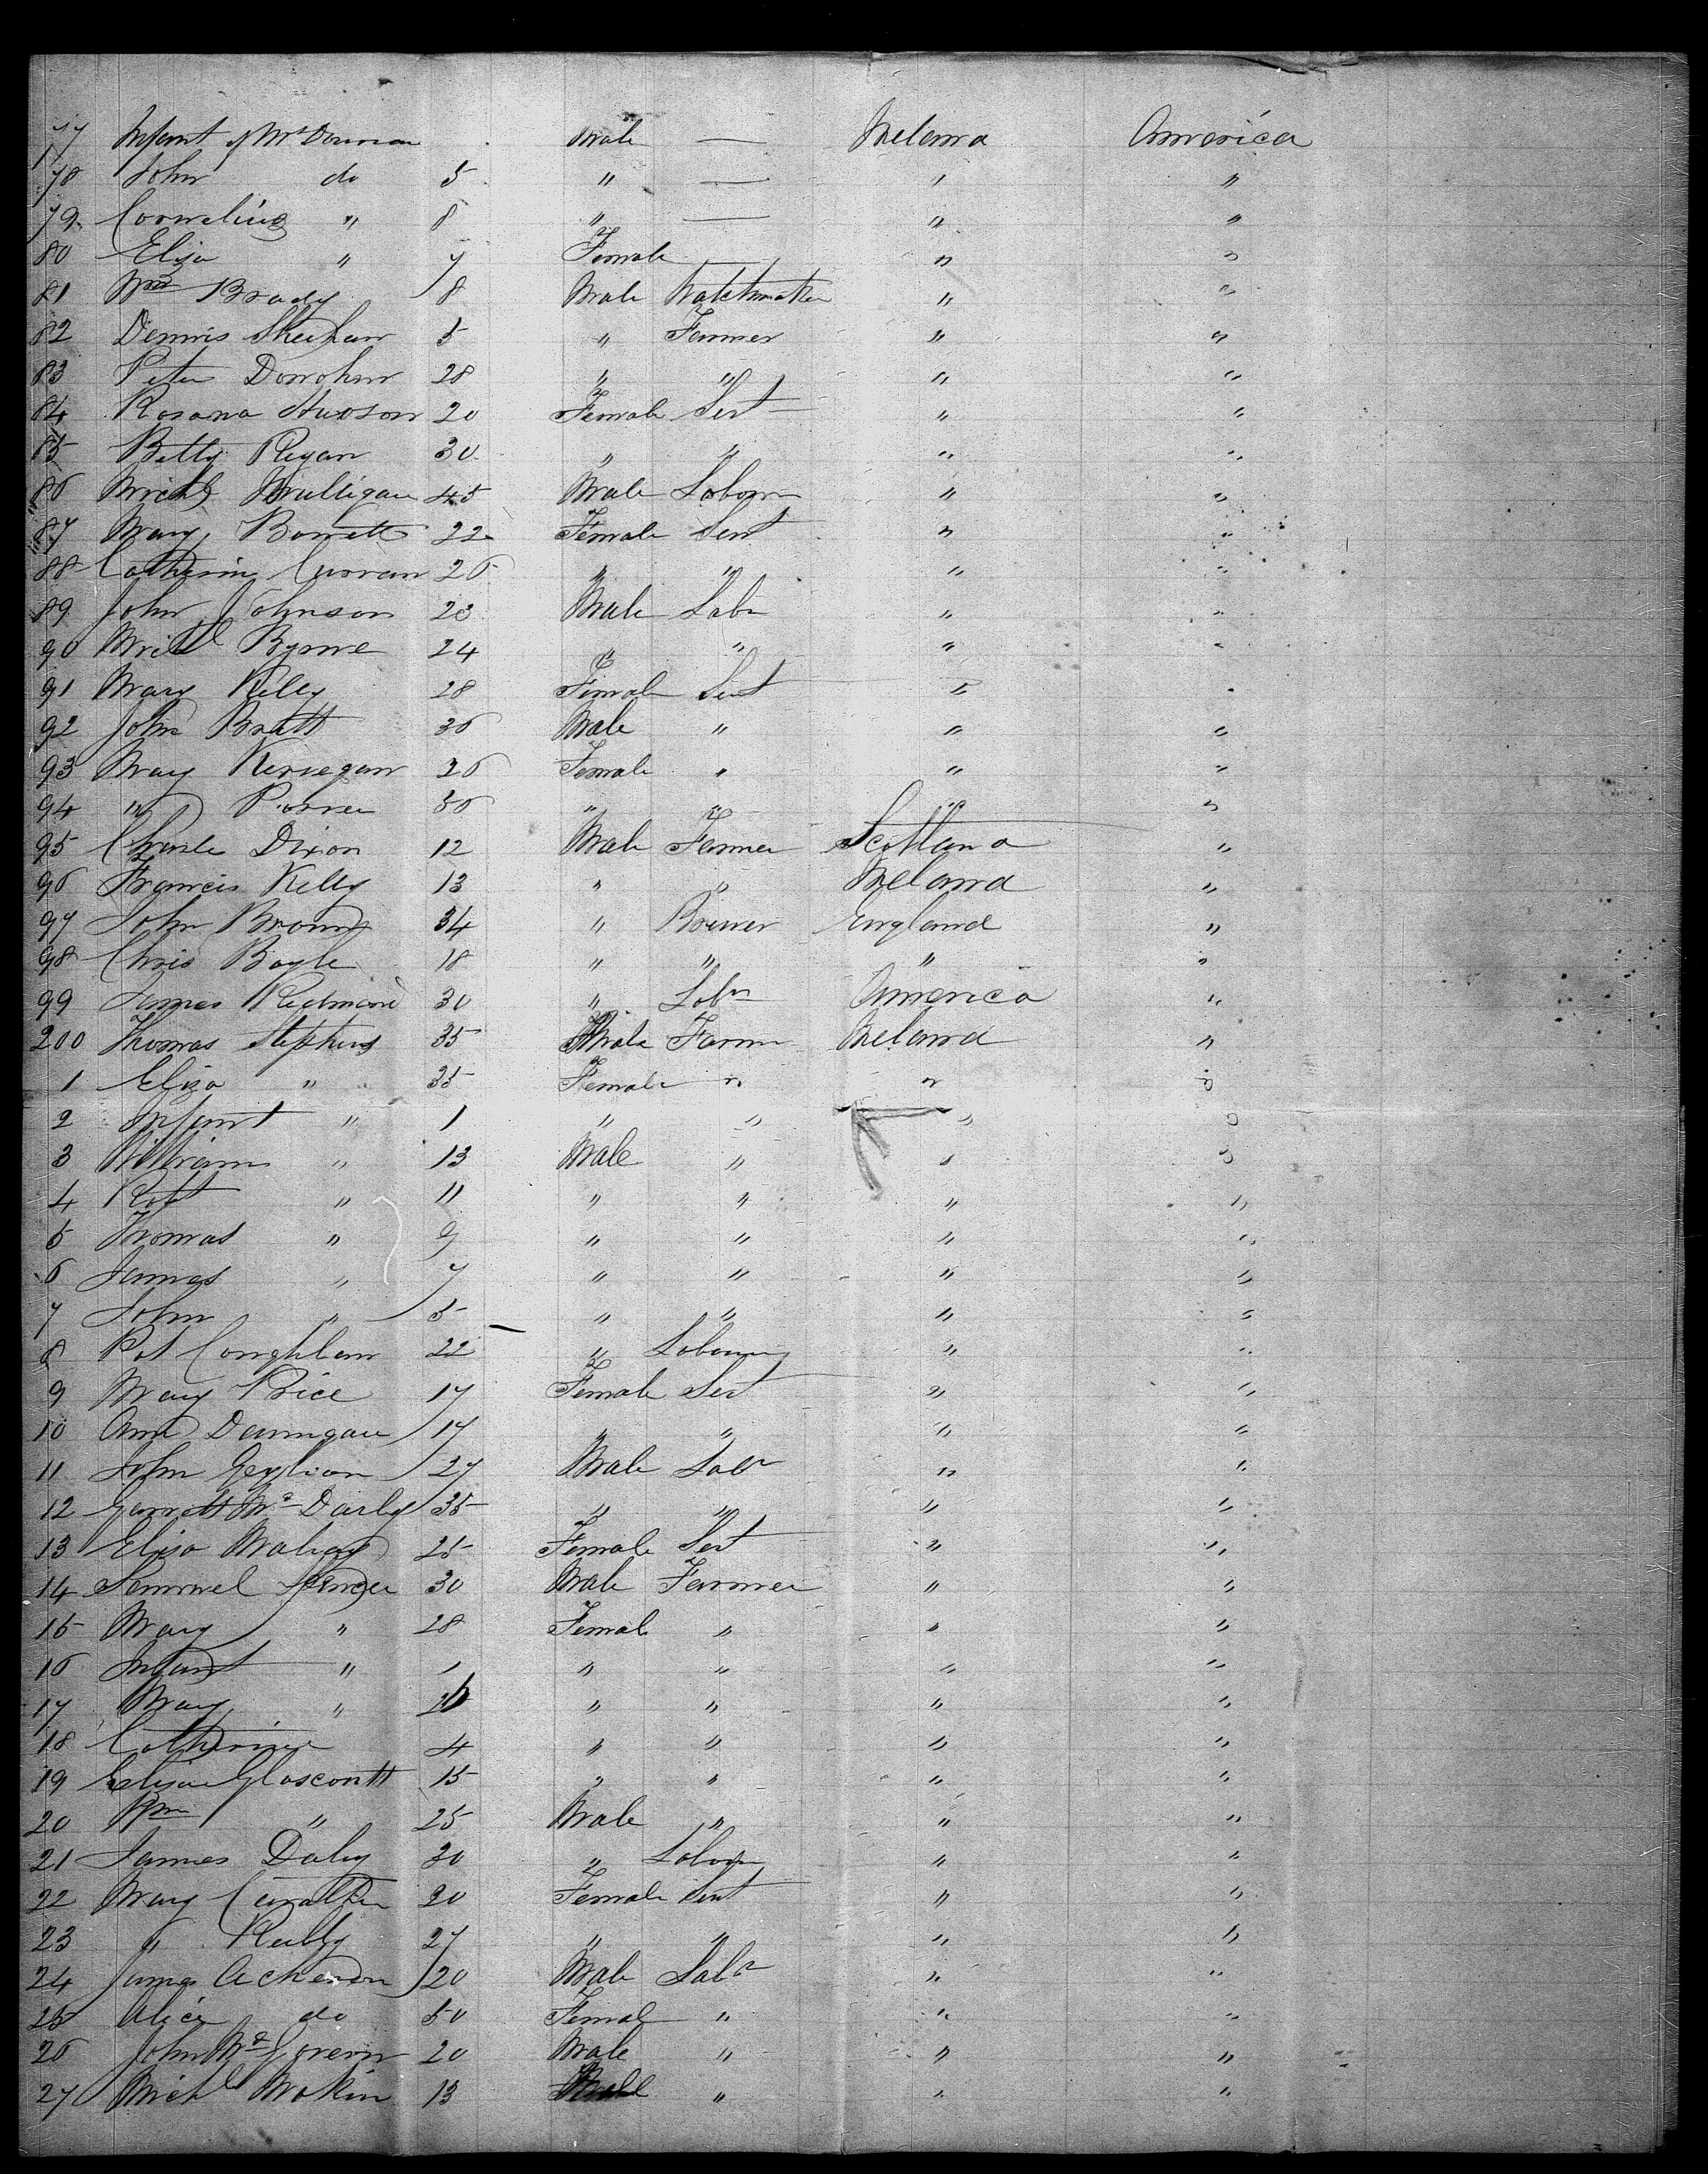 77 Infant of Mc Male — Ireland America
78 John do 5 " — " "
79 Cornelius " 8 " — " "
80 Eliza " 7 Female — " "
81 Wm Brady 8 Male Watchmaker " "
82 Dennis Sheehan 5 " Farmer " "
83 Peter Donohue 28 " " " "
84 Rosana Hudson 20 Female Sert " "
85 Betty Regan 30 " " " "
86 Michl Mulligan 45 Male Labour " "
87 Mary Barrett 22 Female Sert " "
88 Catherine Curran 26 " " " "
89 John Johnson 23 Male Labr " "
90 Michl Byrne 24 " " " "
91 Mary Kelly 28 Female Sert " "
92 John Bratt 36 Male " " "
93 Mary 26 Female " " "
94 " 36 " " " "
95 Charles Dixon 12 Male Farmer Scotland "
96 Francis Kelly 13 " " Ireland "
97 John Brown 34 " Brewer England "
98 Chris Boyle 18 " " " "
99 James Redmond 30 " Labr America "
200 Thomas Stephens 35 Male Farmer Ireland "
1 Eliza " 35 Female " " "
2 Infant " 1 " " " "
3 William " 13 Male " " "
4 Robt " 11 " " " "
5 Thomas " 9 " " " "
6 James " 7 " " " "
7 John " 5 " " " "
8 Pat Coughlan 22 " Labouring " "
9 Mary Price 17 Female Sert " "
10 Ann Dannigan 17 " " " "
11 John 27 Male Labr " "
12 Garrett Mc Darby 35 " " " "
13 Eliza Mahay 25 Female Sert " "
14 Sammuel Spencer 30 Male Farmer " "
15 Mary " 28 Female " " "
16 Infant " 1 " " " "
17 Mary " " " " "
18 Catherine 4 " " " "
19 Eliza Glascott 15 " " " "
20 Wm " 25 Male " " "
21 James Daly 30 " Labour " "
22 Mary 20 Female Sert " "
23 " Reilly 27 " " " "
24 James Acheson 20 Male Labr " "
25 Alice do 50 Female " " "
26 John McGovern 20 Male " " "
27 Michl Makin 13 Male " " "